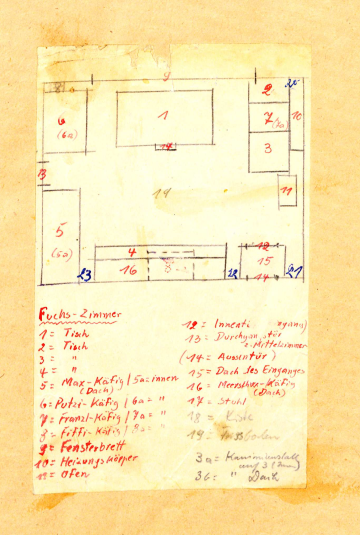 9
8
2
20
6
(6a)
1
7
(7a)
10
3
17
13
11
19
5
(5a)
4
12
16
8
15
23
22
14
21
Fuchs-Zimmer
1 = Tisch
2 = Tisch
3 = "
4 = "
5 = Max-Käfig / 5a = innen
(Dach)
6 = Putzi-Käfig / 6a = "
7 = Franzl-Käfig / 7a = "
8 = Fiffi-Käfig / 8a = "
9 = Fensterbrett
10 = Heizungskörper
11 = Ofen
12 = Innentü
13 = Durchgangstür
z. Mittelzimmer
(14 = Aussentür)
15 = Dach des Einganges
16 = Meerschw.-Käfig
(Dach)
17 = Stuhl
18 = Kiste
19 = Fussboden
3a = Kaninchenstall
auf 3
3b = " Dach